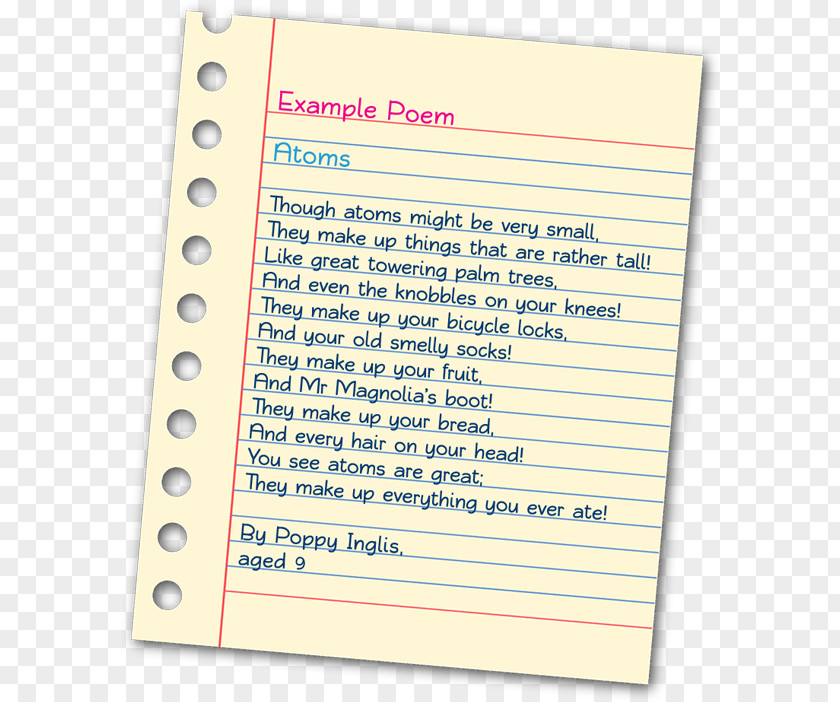 Example Poem
Atoms
Though atoms might be very small,
They make up things that are rather tall!
Like great towering palm trees,
And even the knobbles on your knees!
They make up your bicycle locks,
And your old smelly socks!
They make up your fruit,
And Mr Magnolia's boot!
They make up your bread,
And every hair on your head!
You see atoms are great;
They make up everything you ever ate!
By Poppy Inglis,
aged 9